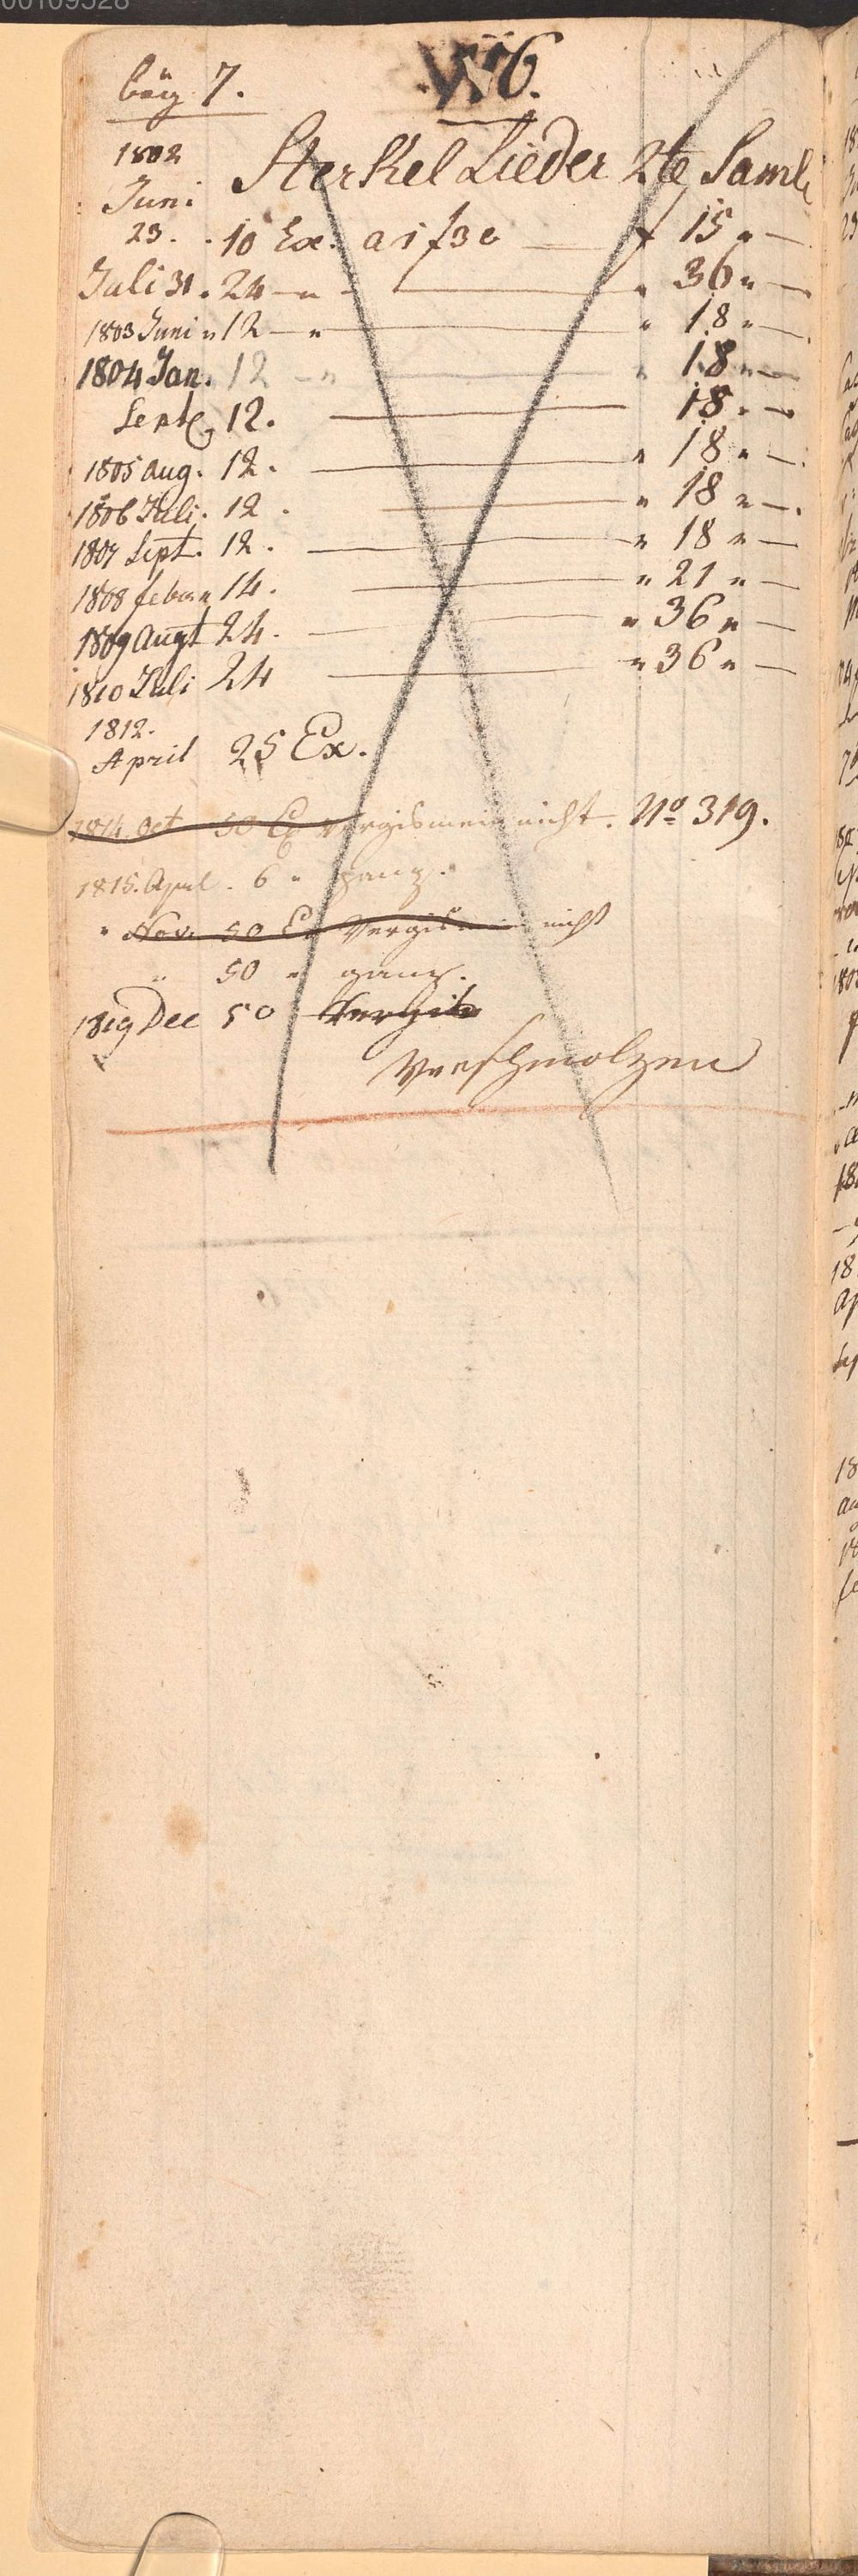 00109528
bög 7.
176.
1802
Sterkel Lieder 2te Saml
Juni
23. 10 Ex. a 1 f 30 — f 15 " —
Juli 31. 24 — " — " 36 " —
1803 Juni " 12 — " — " 18 " —
1804 Jan. 12 — " — " 18 " —
Sept 12. — 18 " —
1805 Aug. 12. — " 18 " —
1806 Juli. 12. — " 18 " —
1807 Sept. 12. — " 18 " —
1808 febr. " 14. — " 21 " —
1809 Augt 24. — " 36 " —
1810 Juli 24 — " 36 " —
1812.
April 25 Ex.
1814. Oct 50 Ex Vergismein nicht. No 319.
1815. April. 6 " ganz.
" Nov. 50 Ex Vergismein nicht
" 50 " ganz.
1819 Dec 50 Vergis
Verschmolzen